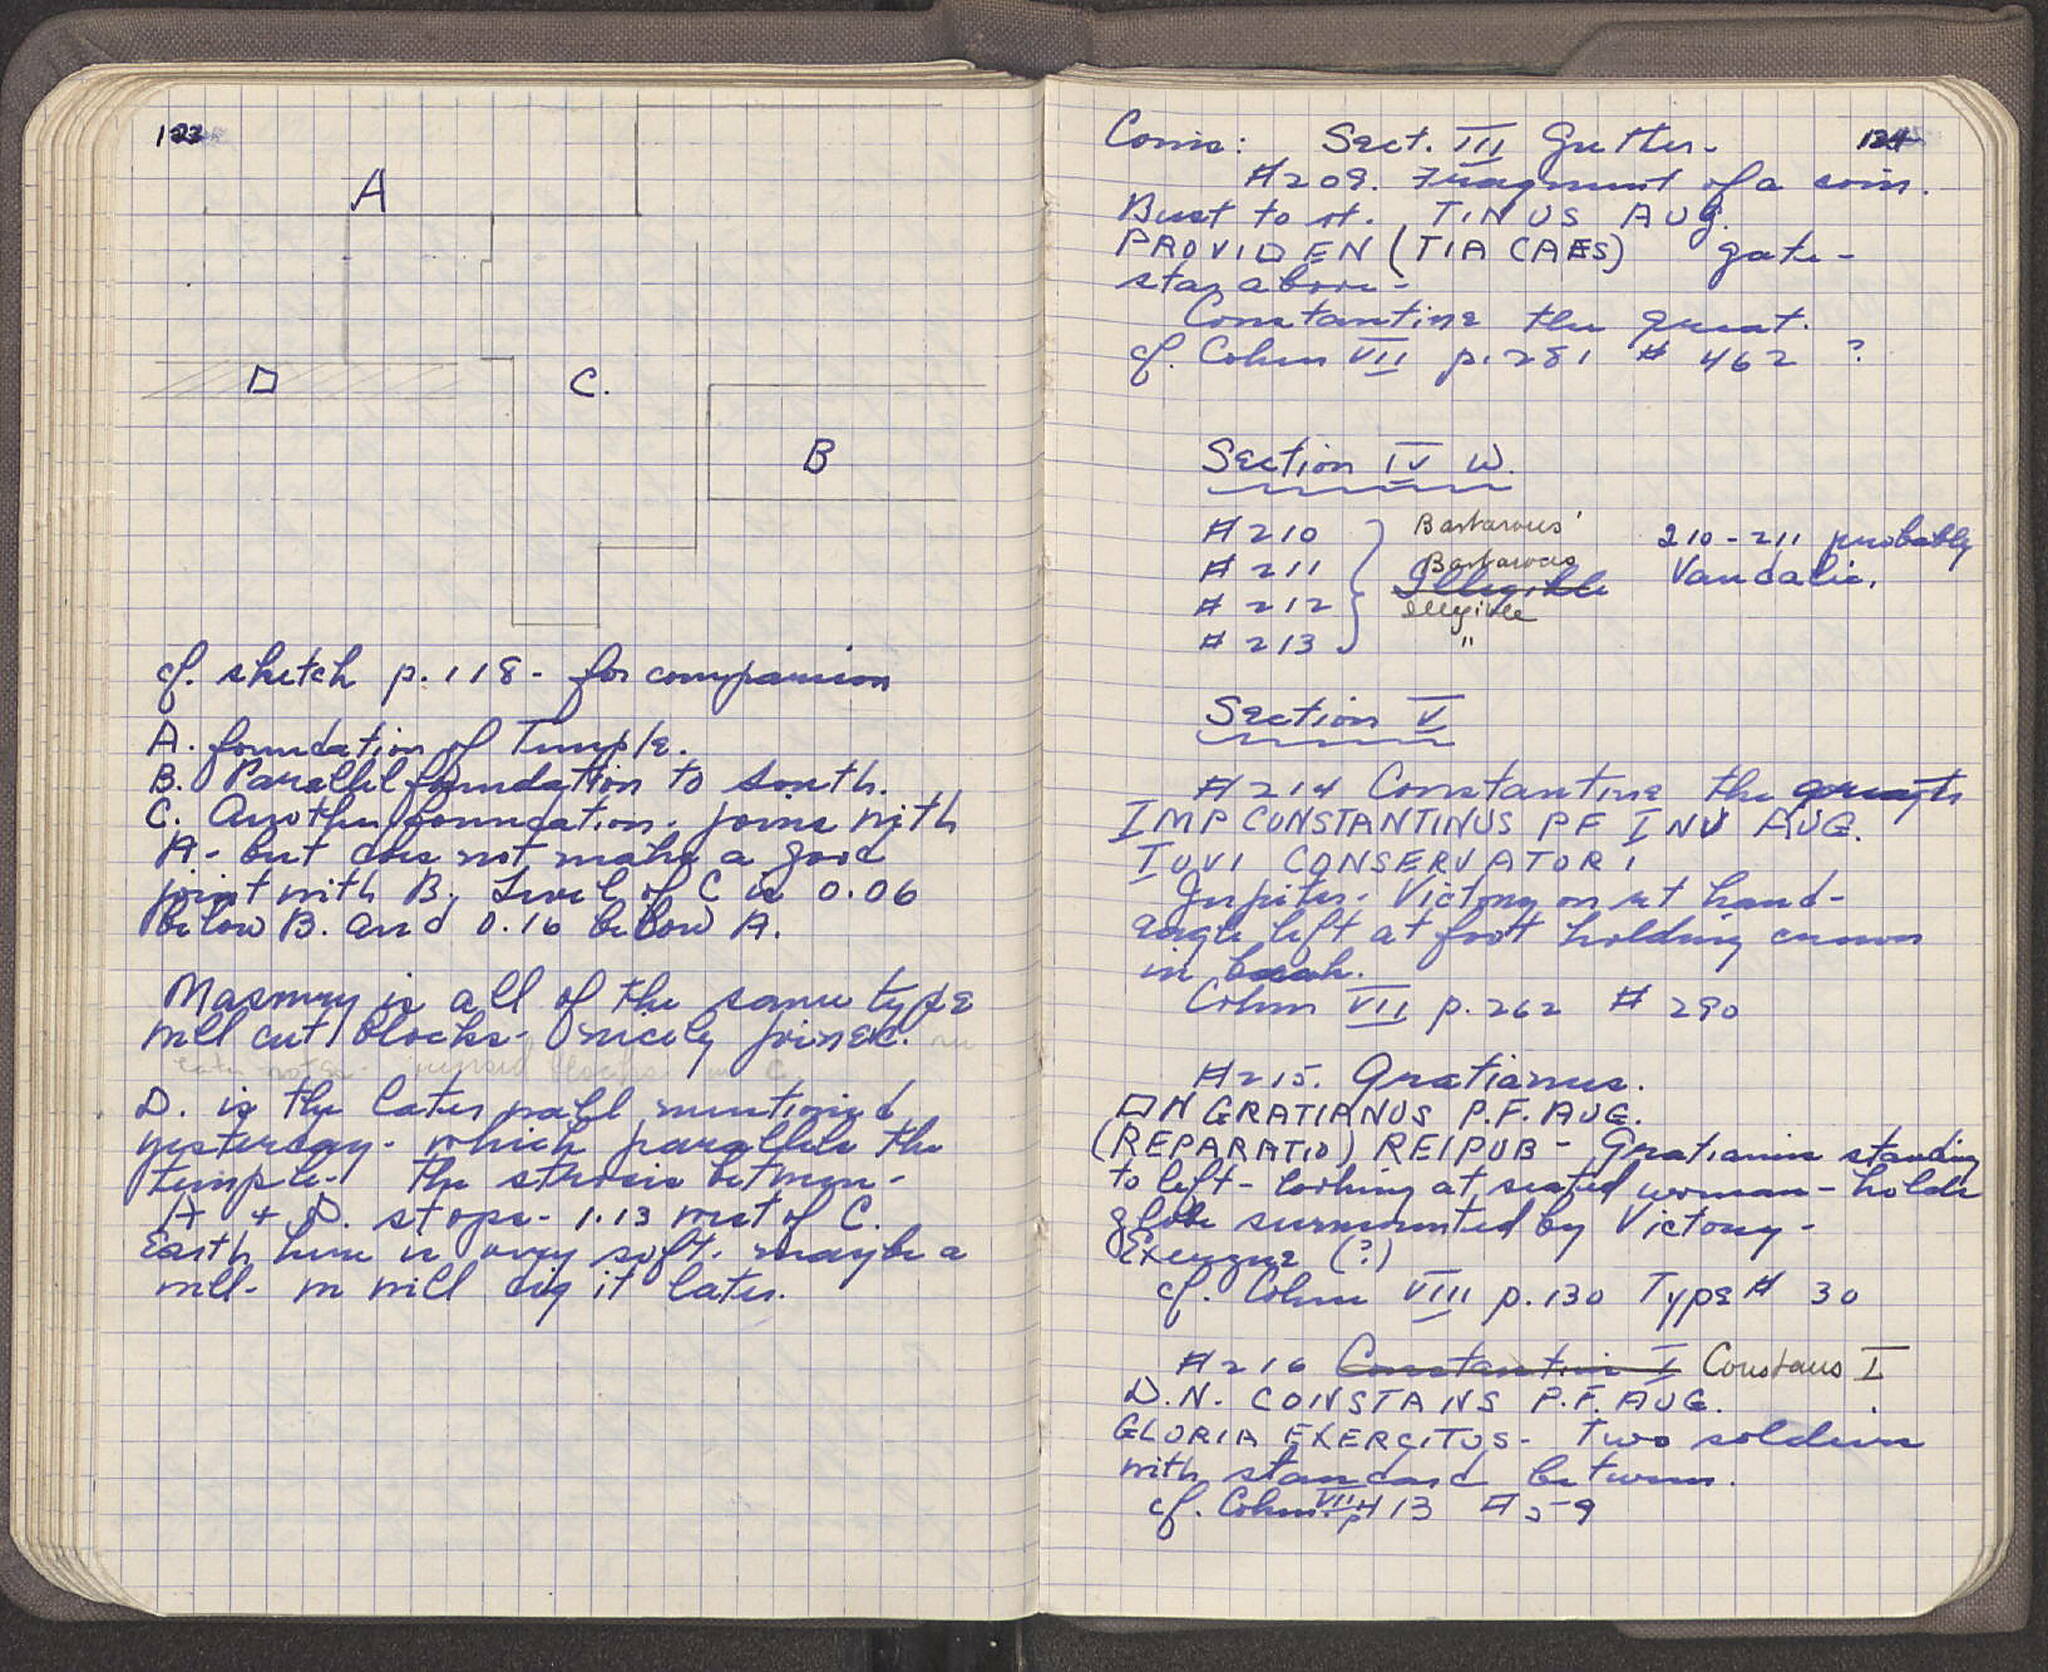 123
A
D
C.
B
cf. sketch p. 118 - for comparison
A. foundation of Temple.
B. Parallel foundation to South.
C. Another foundation. joins with
A - but does not make a good
joint with B. Level of C is 0.06
below B. and 0.16 below A.
Masonry is all of the same type
well cut blocks - nicely joined.
later notes - reused blocks in C.
D. is the later wall mentioned
yesterday - which parallels the
temple. The strosis between -
A + D. stops - 1.13 west of C.
Earth here is very soft. maybe a
well - we will dig it later.
124
Coins: Sect. III Gutter -
#209. Fragment of a coin.
Bust to rt. TINUS AUG.
PROVIDEN (TIA CAES) gate -
star above -
Constantine the great.
cf. Cohen VII p. 281 # 462 ?
Section IV W.
#210 Barbarous 210-211 probably
#211 Barbarous Vandalic.
Illegible
#212 illegible
#213 "
Section V
#214 Constantine the great
IMP CONSTANTINUS PF INV AUG.
IOVI CONSERVATORI
Jupiter - Victory on rt hand -
eagle left at foot holding crown
in beak.
Cohen VII p. 262 # 290
#215. Gratianus.
DN GRATIANUS P.F. AUG.
(REPARATIO) REIPUB - Gratianus standing
to left - looking at seated woman - holds
globe surmounted by Victory -
Exergue (?)
cf. Cohen VIII p. 130 Type # 30
#216 Constantine I Constans I
D.N. CONSTANS P.F. AUG.
GLORIA EXERCITUS - Two soldiers
with standard between.
cf. Cohen VII p 413 #59